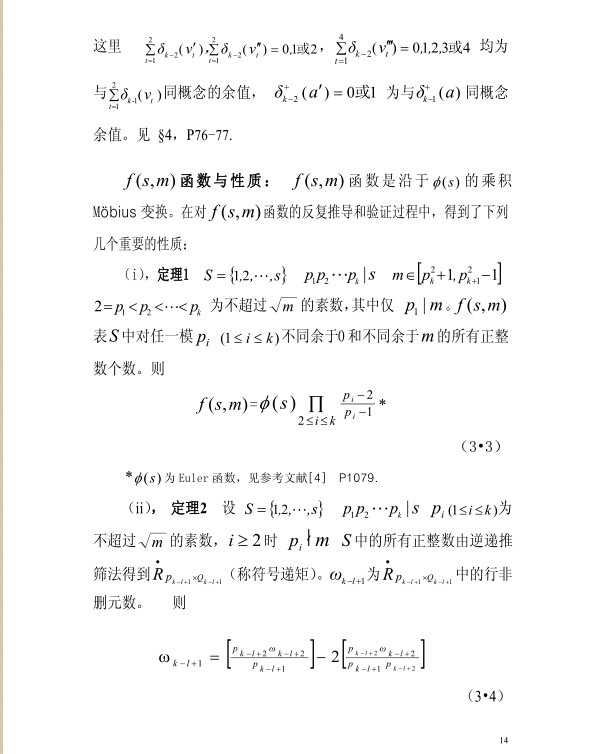 这里 $\sum_{t=1}^{2}\delta_{k-2}(v'_t),\sum_{t=1}^{2}\delta_{k-2}(v''_t)=0,1或2$，$\sum_{t=1}^{4}\delta_{k-2}(v'''_t)=0,1,2,3或4$ 均为
与$\sum_{t=1}^{2}\delta_{k-1}(v_t)$同概念的余值， $\delta^{+}_{k-2}(a')=0或1$ 为与$\delta^{+}_{k-1}(a)$同概念
余值。见 §4，P76-77.
$f(s,m)$函数与性质： $f(s,m)$函数是沿于$\phi(s)$的乘积
Möbius 变换。在对$f(s,m)$函数的反复推导和验证过程中，得到了下列
几个重要的性质：
（i），定理1 $S=\{1,2,\cdots,s\}$ $p_1p_2\cdots p_k|s$ $m\in[p_k^2+1,p_{k+1}^2-1]$
$2=p_1<p_2<\cdots<p_k$ 为不超过$\sqrt{m}$的素数，其中仅 $p_1|m$。$f(s,m)$
表$S$中对任一模$p_i$ $(1\le i\le k)$不同余于0和不同余于$m$的所有正整
数个数。则
$f(s,m)=\phi(s)\prod_{2\le i\le k}\frac{p_i-2}{p_i-1}$*
（3•3）
*$\phi(s)$为 Euler 函数，见参考文献[4] P1079.
（ii）， 定理2 设 $S=\{1,2,\cdots,s\}$ $p_1p_2\cdots p_k|s$ $p_i(1\le i\le k)$为
不超过$\sqrt{m}$的素数，$i\ge 2$时 $p_i\nmid m$ $S$中的所有正整数由逆递推
筛法得到$\dot{R}_{p_{k-l+1}\times Q_{k-l+1}}$（称符号递矩）。$\omega_{k-l+1}$为$\dot{R}_{p_{k-l+1}\times Q_{k-l+1}}$中的行非
删元数。 则
$\omega_{k-l+1}=\left[\frac{p_{k-l+2}\omega_{k-l+2}}{p_{k-l+1}}\right]-2\left[\frac{p_{k-l+2}\omega_{k-l+2}}{p_{k-l+1}p_{k-l+2}}\right]$
（3•4）
14